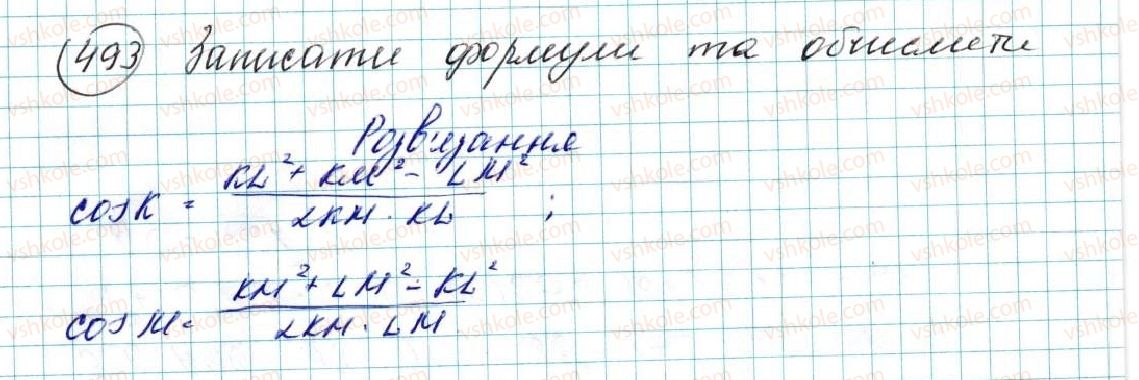 493 Записати формули та обчислити
Розв'язання
cos K = KL² + KM² - LM² / 2KM · KL ;
cos M = KM² + LM² - KL² / 2KM · LM